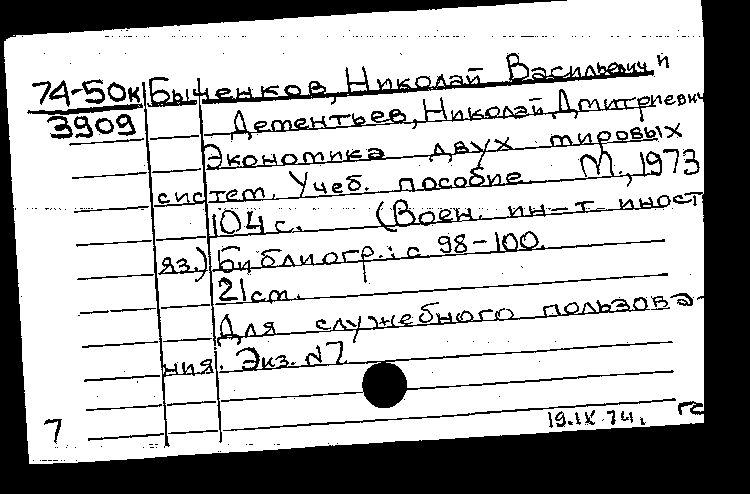 74-50к Быченков, Николай Васильевич и
3909 Дементьев, Николай Дмитриевич
Экономика двух мировых
систем. Учеб. пособие М., 1973
104 с. (Воен. ин-т иност
яз.) Библиогр.: с 98-100.
21 см.
Для служебного пользова-
ния. Экз. N7
7 19.IX.74. гс